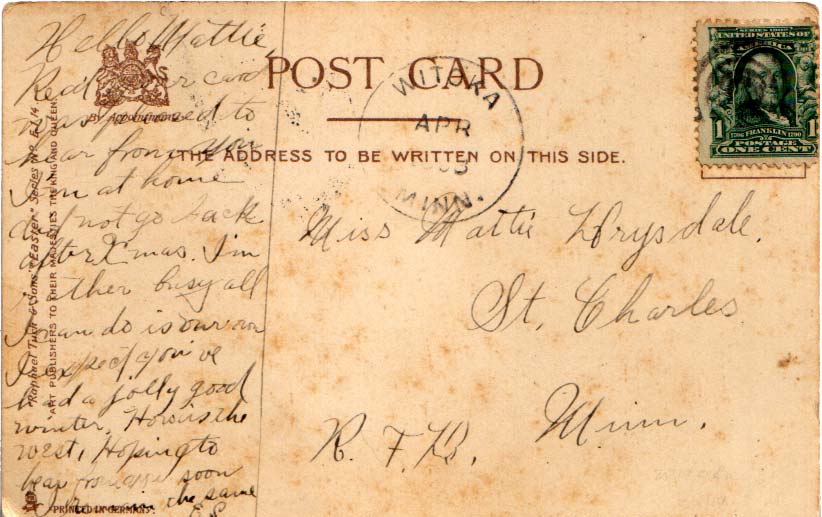 Hello Mattie,
Rec'd your card
was pleased to
hear from you
I'm at home
did not go back
after Xmas. I'm
rather busy all
I can do is our own
I expect you've
had a jolly good
winter. How is the
west, Hoping to
hear from you soon
the same
E.S.
By Appointment
"Raphael Tuck & Sons' "Easter" Series No.
"ART PUBLISHERS TO THEIR MAJESTIES THE KING AND QUEEN.
PRINTED IN GERMANY.
POST CARD
THE ADDRESS TO BE WRITTEN ON THIS SIDE.
WITOKA
APR
MINN.
SERIES 1902
UNITED STATES OF
AMERICA
1706 FRANKLIN 1790
1 1
POSTAGE
ONE CENT
Miss Mattie Drysdale.
St. Charles
Minn.
R. F. D.